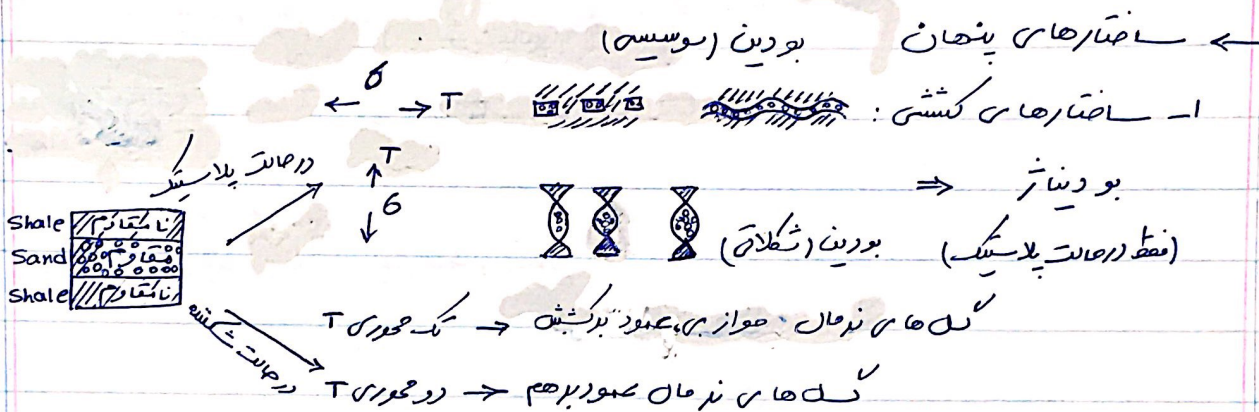 ← ساختارهای پنهان بودین (سوسیسی)
۱- ساختارهای کششی : T → ← б
T
б
درحالت پلاستیک
بودیناژ ⇐
(فقط درحالت پلاستیک) بودین (شکلاتی)
Shale نامقاوم
Sand مقاوم
Shale نامقاوم
گسل های نرمال موازی، عمود بر کشش → تک محوری T
درحالت شکننده
گسل های نرمال عمود بر هم → دو محوری T